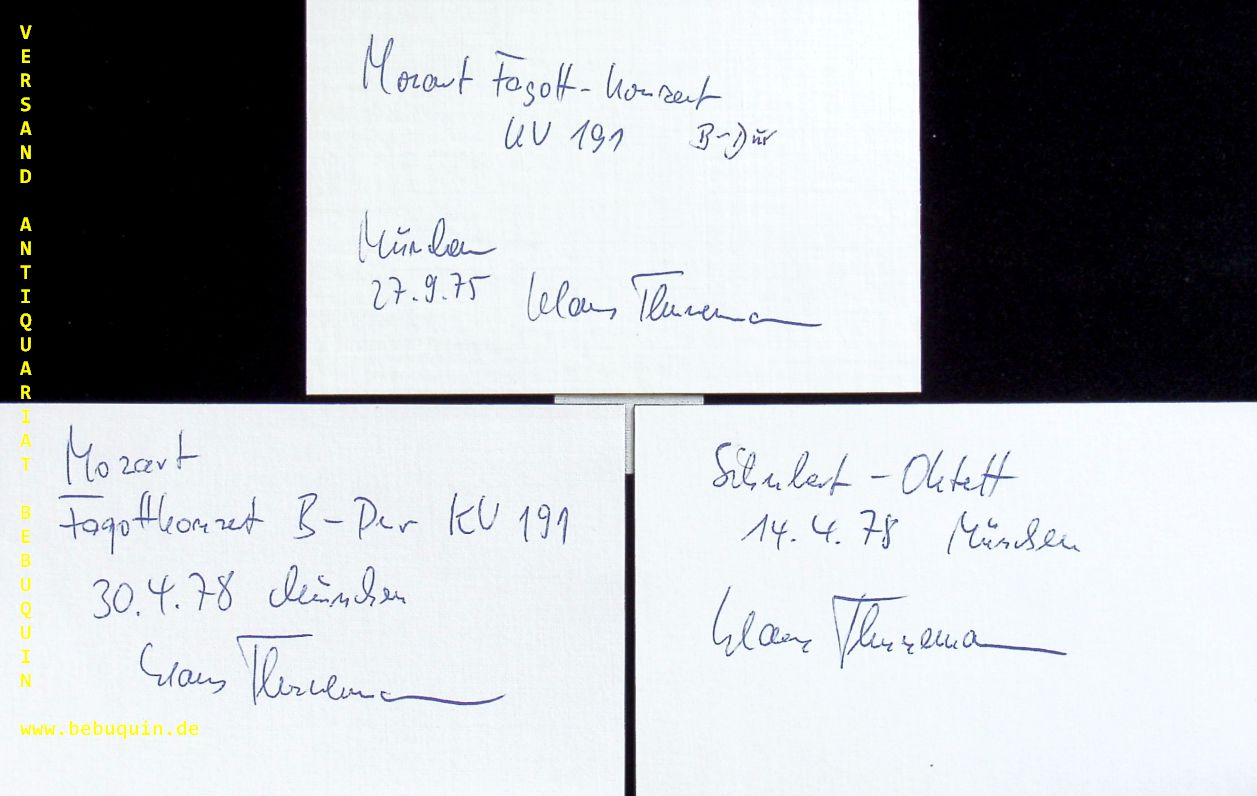 VERSAND ANTIQUARIAT BEBUQUIN
www.bebuquin.de
Mozart Fagott-Konzert
KV 191 B-Dur
München
27.9.75 Klaus Thunemann
Mozart
Fagottkonzert B-Dur KV 191
30.4.78 München
Klaus Thunemann
Schubert - Oktett
14.4.78 München
Klaus Thunemann